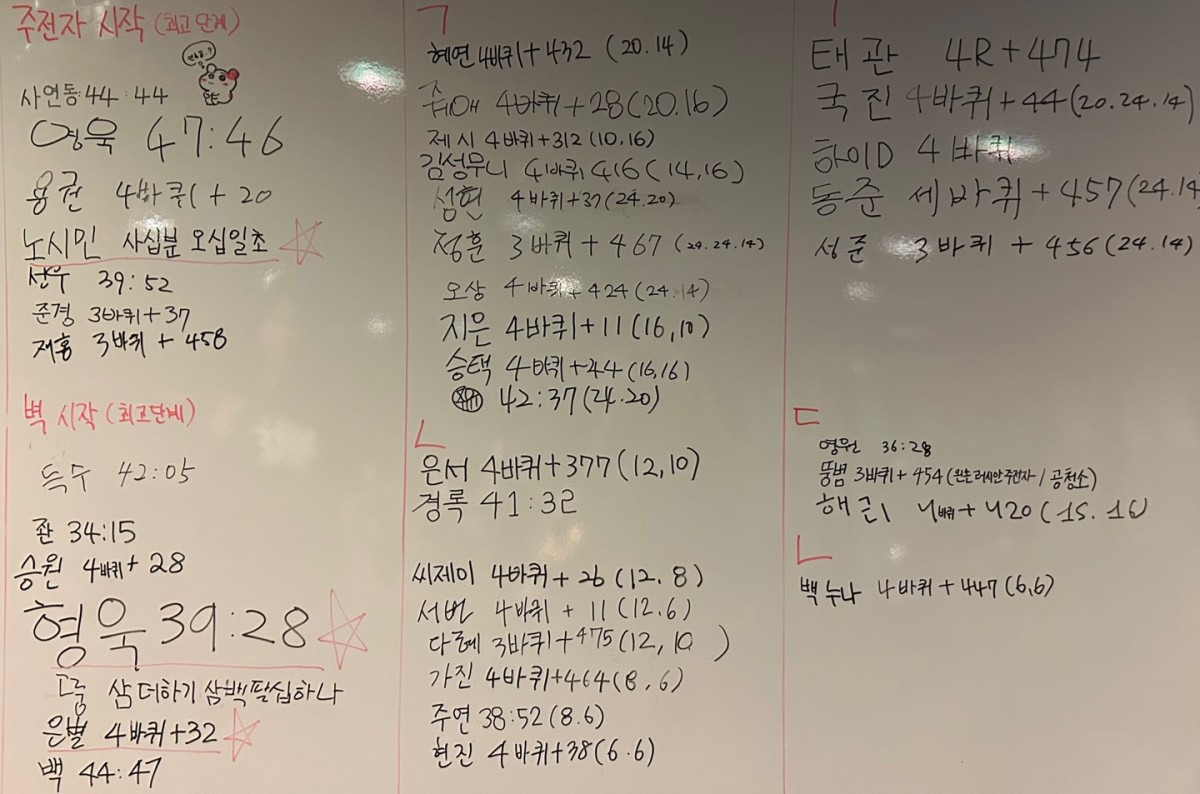 주전자 시작 (최고 단계)
사연동:44:44
영욱 47:46
용권 4바퀴 + 20
노시민 사십분 오십일초
산우 39:52
준경 3바퀴+37
재홍 3바퀴 + 458
벽 시작 (최고단계)
득수 42:05
좐 34:15
승원 4바퀴+ 28
형욱 39:28
삼 더하기 삼백팔십하나
은별 4바퀴+32
백 44:47
ㄱ
혜연 4바퀴+432 (20.14)
4바퀴+28(20.16)
제시 4바퀴+312(10,16)
김성무니 4바퀴416(14,16)
섬현 4바퀴+37(24.20)
정훈 3바퀴+467(24.24.14)
오상 4바퀴+424(24.14)
지은 4바퀴+11(16,10)
승택 4바퀴+44(16,16)
42:37(24.20)
ㄴ
은서 4바퀴+377(12,10)
경록 41:32
씨제이 4바퀴+26(12.8)
서번 4바퀴 + 11(12.6)
다혜 3바퀴+475(12,10)
가진 4바퀴+464(8.6)
주연 38:52(8.6)
현진 4바퀴+38(6.6)
ㅣ
태관 4R+474
국진 4바퀴+44(20.24.14)
하이D 4바퀴
동준 세바퀴+457(24.14)
성준 3바퀴 + 456(24.14)
ㄷ
영원 36:28
뚱범 3바퀴+454(왼손러시안주전자/공청소)
해근 4바퀴+420(15.16)
ㄴ
백누나 4바퀴+447(6,6)